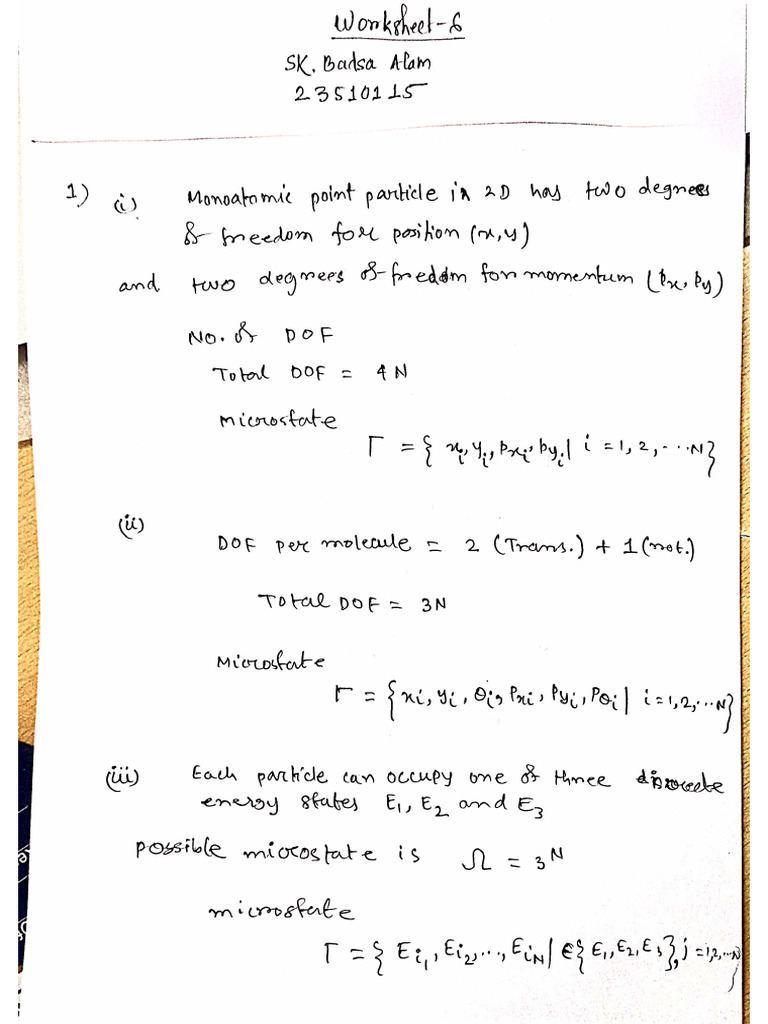 Worksheet-6
SK. Badsa Alam
23510115
1) (i) Monoatomic point particle in 2D has two degrees
of freedom for position (x,y)
and two degrees of freedom for momentum (px, py)
No. of DOF
Total DOF = 4N
microstate
Γ = { xi, yi, pxi, pyi | i = 1, 2, ... N}
(ii) DOF per molecule = 2 (Trans.) + 1 (rot.)
Total DOF = 3N
Microstate
Γ = {xi, yi, θi, Pxi, Pyi, Pθi | i = 1,2, ... N}
(iii) Each particle can occupy one of three discrete
energy states E1, E2 and E3
possible microstate is Ω = 3^N
microstate
Γ = { Ei1, Ei2, ..., EiN | ∈ { E1, E2, E3 }, j = 1,2, ... N}